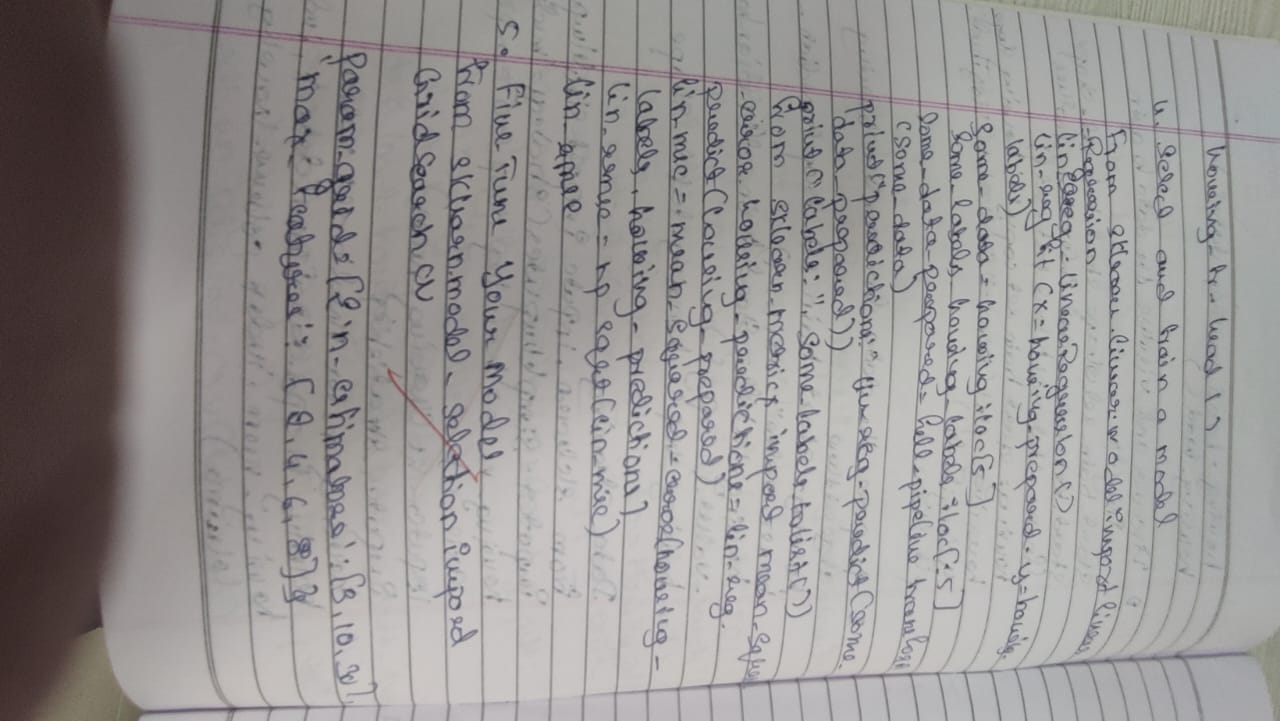 housing_tr.head()
4. Select and train a model
From sklearn.linear_model import linear
Regression
lin_reg = linearRegression()
lin_reg.fit (x = housing_prepared, y = housing_
labels)
Some_data = housing.iloc[:5]
Some_labels, housing_labels.iloc[:5]
Some_data_prepared = full_pipeline.transfor
(some_data)
print("prediction:" lin_reg.predict(some_
data_prepared))
print("labels:", some_labels.tolist())
From sklearn_metrics import mean_squar
_error housing_predictions = lin_reg.
predict(housing_prepared)
lin_mse = mean_squared_error(housing_
labels, housing_predictions)
lin_rmse = np.sqrt(lin_mse)
lin_rmse
5. Fine Tune Your Model
From sklearn.model_selection import
Gridsearch CV
param_grid = [{'n_estimators': [3, 10, 30],
'max_features': [2, 4, 6, 8]},